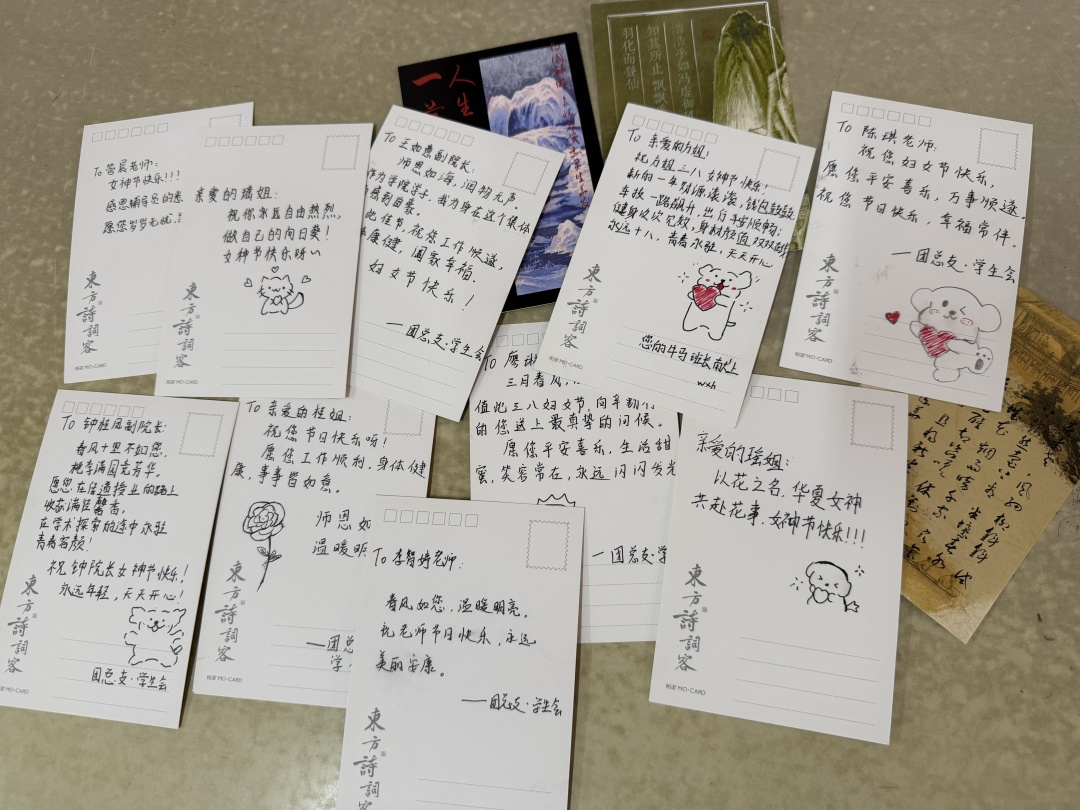 To 管晨老师:
女神节快乐!!!
感恩辅导员的
愿您岁岁无忧,
東方詩詞客
相邀 MO·CARD
亲爱的瑶姐:
祝你永远自由热烈,
做自己的向日葵!
女神节快乐呀~
東方詩詞客
相邀 MO·CARD
To 王如意副院长:
师恩如海,润物无声。
作为学院学子,我为身在这个集体
感到自豪。
此佳节,祝您工作顺遂,
康健,阖家幸福.
妇女节快乐!
—团总支·学生会
人生
一
To 亲爱的力姐:
祝力姐三八女神节快乐!
新的一年财源滚滚,钱包鼓鼓
车技一路飙升,出白手字顺畅;
健身次次见效,身材颜值双双在线
永远十八、青春永驻,天天开心
您的牛马班长献上
wxh
東方詩詞客
相邀 MO·CARD
羽化而登仙
知其所止飘飘
浩浩乎如冯虚御
To 陈琪老师:
祝您妇女节快乐,
愿您平安喜乐,万事顺遂。
祝您节日快乐、幸福常伴。
—团总支·学生会
東方詩詞客
相邀 MO·CARD
To 钟桂凤副院长:
春风十里不如您,
桃李满园竞芳华。
愿您在传道授业的路上
收获满径馨香,
在学术探索的途中永驻
青春容颜!
祝钟院长女神节快乐!
永远年轻,天天开心!
团总支·学生会
東方詩詞客
相邀 MO·CARD
To 亲爱的桂姐:
祝您节日快乐呀!
愿您工作顺利,身体健
康,事事皆如意。
师恩如
温暖明
—团总
学
東方詩詞客
相邀 MO·CARD
To 廖琪
三月春风,
值此三八妇女节,向辛勤付
的您送上最真挚的问候。
愿您平安喜乐,生活甜
蜜,笑容常在,永远闪闪发光
—团总支·学
To 李智婷老师:
春风如您,温暖明亮。
祝老师节日快乐,永远
美丽安康。
—团总支·学生会
東方詩詞客
亲爱的瑶姐:
以花之名,华夏女神
共赴花事.女神节快乐!!!
東方詩詞客
相邀 MO·CARD